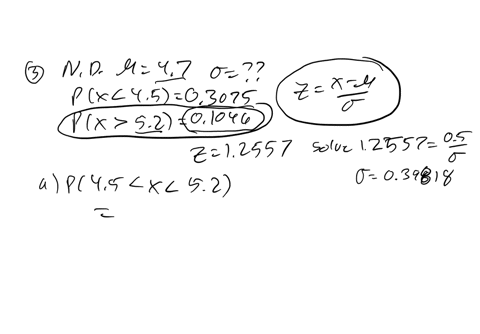 ③ N.D. μ=4.7 σ=??
P(x<4.5)=0.3075
P(x>5.2)=0.1046
z=x-μ/σ
z=1.2557 solve 1.2557=0.5/σ
σ=0.39818
a) P(4.5<x<5.2)
=